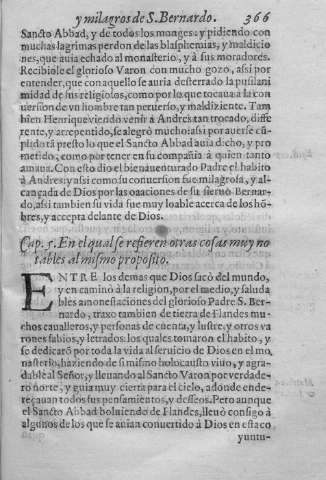 y milagros de S. Bernardo. 366
Sancto Abbad, y de todos los monges: y pidiendo con
muchas lagrimas perdon de las blasphemias, y maldicio
nes, que auia echado al monasterio, y à sus moradores.
Recibiole el glorioso Varon con mucho gozo, assi por
entender, que con aquello se auia desterrado la pusilani
midad de sus religiosos, como por lo que tocaua à la con
uersion de vn hombre tan peruerso, y maldiziente. Tam
bien Henrique viendo venir à Andres tan trocado, diffe
rente, y arrepentido, se alegrò mucho: assi por auerse cũ-
plido tã presto lo que el Sancto Abbad auia dicho, y pro
metido, como por tener en su compañia à quien tanto
amaua. Con esto dio el bienauenturado Padre el habito
à Andres: y assi como su conuersion fue milagrosa, y al-
cançada de Dios por las oraciones de su sieruo Bernar-
do, assi tambien su vida fue muy loable acerca de los hõ-
bres, y accepta delante de Dios.
Cap. 5. En el qual se refieren otras cosas muy no
tables al mismo proposito.
ENTRE los demas que Dios sacò del mundo,
y encaminò à la religion, por el medio, y saluda
bles amonestaciones del glorioso Padre S. Ber-
nardo, traxo tambien de tierra de Flandes mu-
chos caualleros, y personas de cuenta, y lustre, y otros va
rones sabios, y letrados: los quales tomaron el habito, y
se dedicarõ por toda la vida al seruicio de Dios en el mo
nasterio, haziendo de si mismo holocausto viuo, y agra-
dable al Señor, y lleuando al Sancto Varon por verdade-
ro norte, y guia muy cierta para el cielo, adonde ende-
reçauan todos sus pensamientos, y desseos. Pero aunque
el Sancto Abbad boluiendo de Flandes, lleuò consigo à
algunos de los que se auian conuertido à Dios en esta co
yuntu-